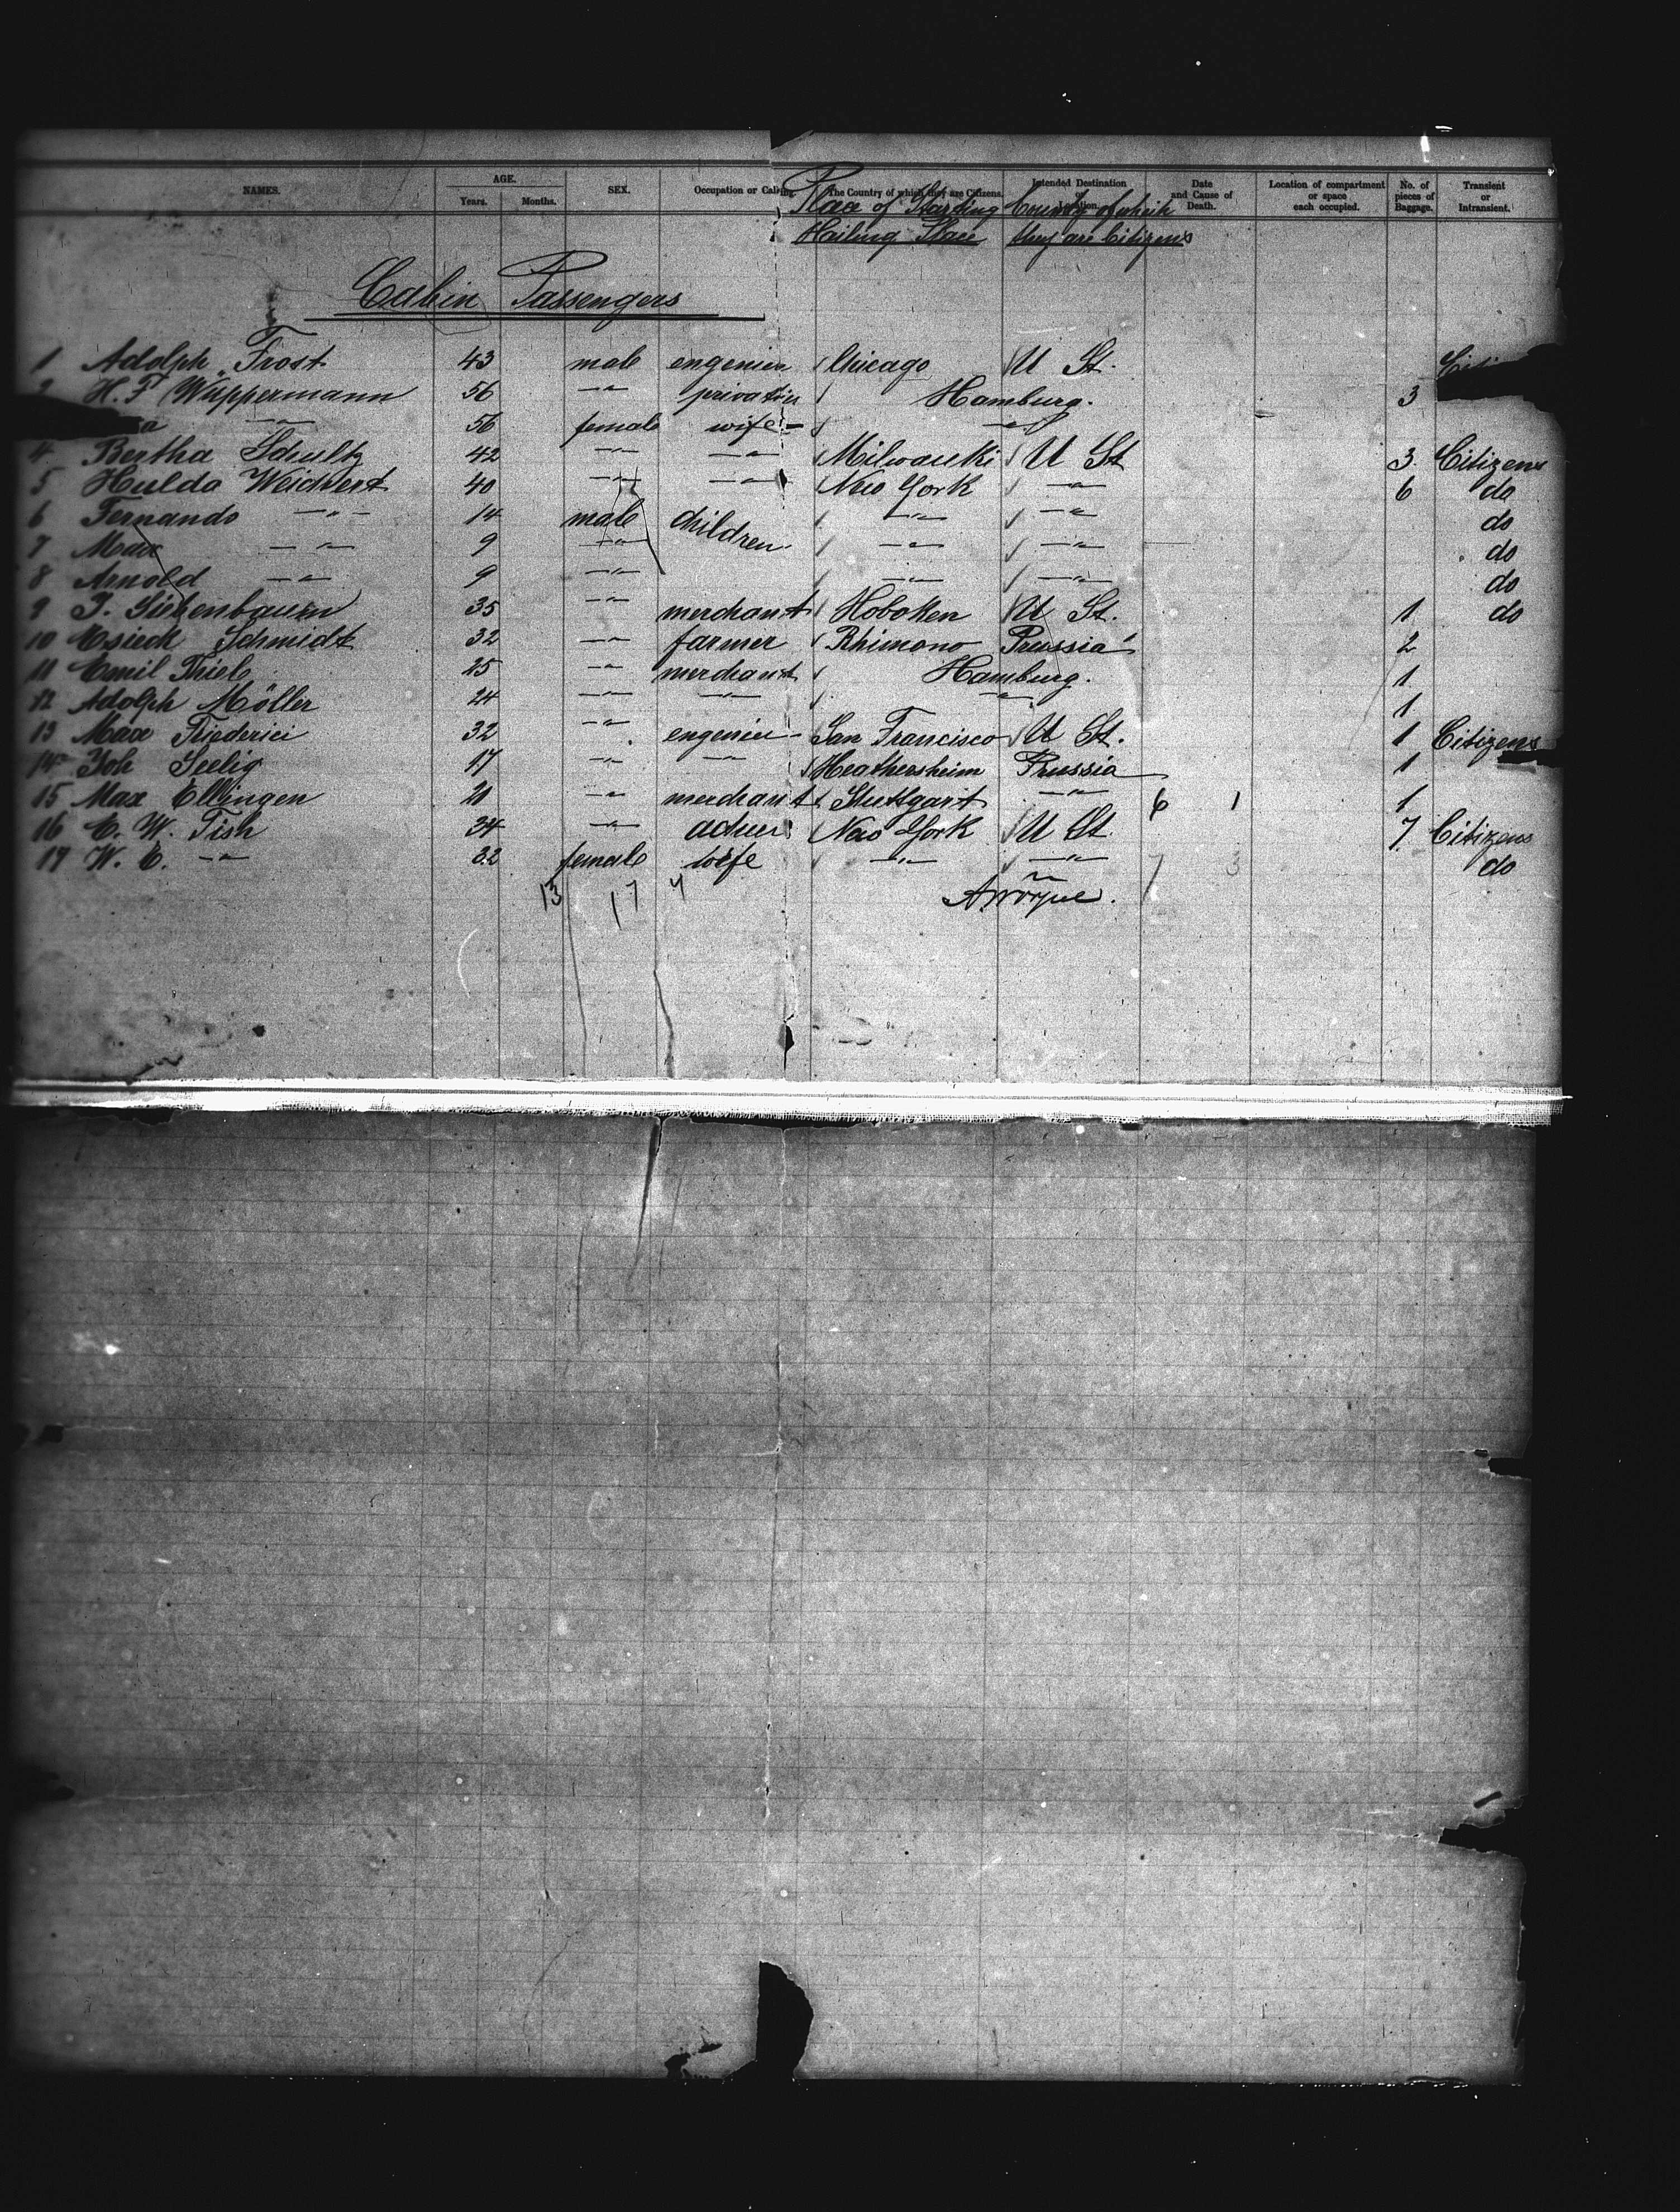 NAMES. AGE. Years. Months. SEX. Occupation or Calling. The Country of which they are Citizens. Intended Destination or Location. Date and Cause of Death. Location of compartment or space each occupied. No. of pieces of Baggage. Transient or Intransient.
Place of Starting Country of which
Hailing Place they are Citizens
Cabin Passengers
1 Adolph Frost 43 male engenier Chicago U St.
2 H. F. Wüppermann 56 —"— Hamburg. 3
56 female wife —"—
4 Bertha Schultz 42 —"— —"— Milwauki U St 3 Citizens
5 Hulda Weichert 40 —"— —"— New York —"— 6 do
6 Fernando —"— 14 male children —"— —"— do
7 Max —"— 9 —"— —"— —"— do
8 Arnold —"— 9 —"— —"— —"— do
9 35 —"— merchant Hoboken U St. 1 do
10 Schmidt 32 —"— farmer Prussia 2
11 Emil Thiele 25 —"— merchant Hamburg. 1
12 Adolph Möller 24 —"— —"— —"— 1
13 Max Friederici 32 —"— engenier San Francisco U St. 1 Citizens
14 Joh Seelig 17 —"— —"— Prussia 1
15 Max Ellingen 21 —"— merchant Stuttgart —"— 6 1 1
16 C. W. Fish 34 —"— New York U St. 7 Citizens
17 W. C. —"— 32 female wife —"— —"— 7 3 do
13 17 4